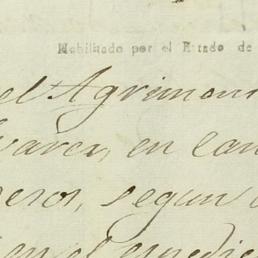 Habilitado por el Estado de
el Agrimen
varez, en can
pesos, segun
en el espedie